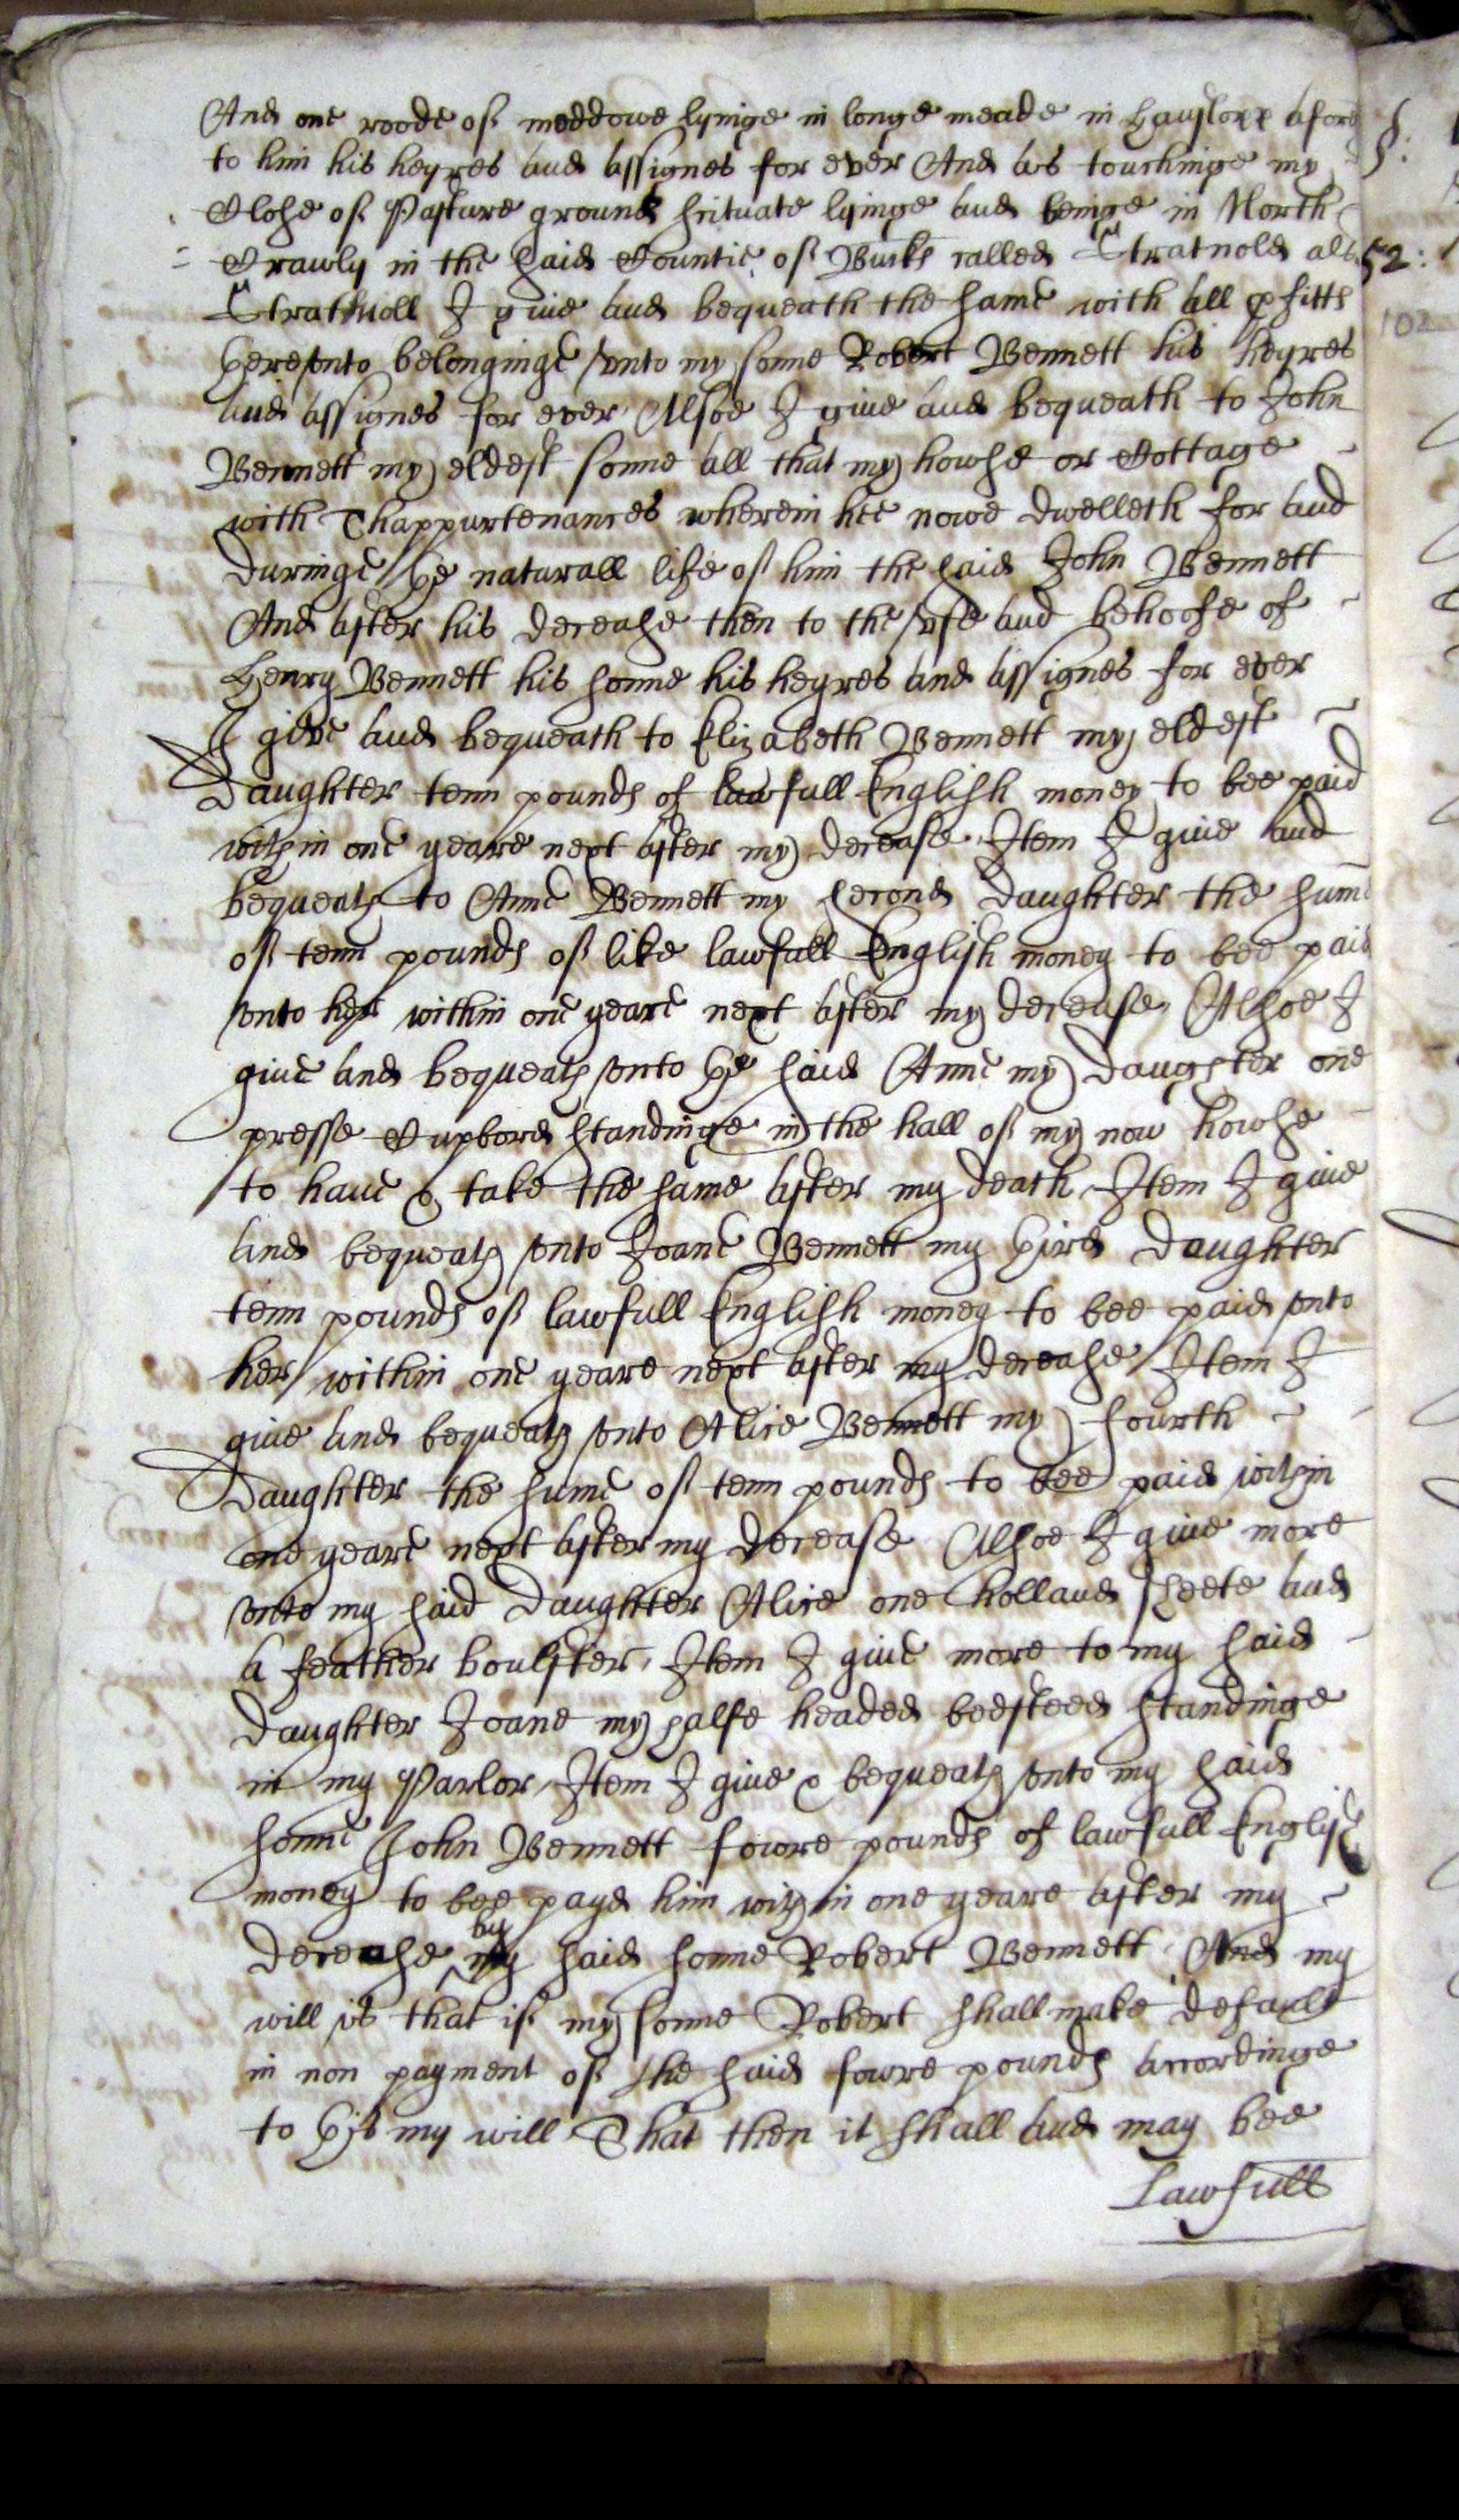 And one roode of meddowe lyinge in longe meade in Hauslopp afore
to him his heyres and assignes for ever And as touchinge my
Close of Pasture ground scituate lyinge and beinge in North
Crawly in the said Countie of Bucks called Stratnold als
Strathnoll I give and bequeath the same with all pfitts
thereunto belonginge unto my sonne Robert Bennett his heyres
and assignes for ever Alsoe I give and bequeath to John
Bennett my eldest sonne all that my howse or Cottage
with Thappurtenances wherein hee nowe dwelleth for and
duringe the naturall life of him the said John Bennett
And after his decease then to the use and behoofe of
Henry Bennett his sonne his heyres and assignes for ever
I give and bequeath to Elizabeth Bennett my eldest
Daughter tenn pounds of lawfull English money to bee paid
within one yeare next after my decease Item I give and
bequeath to Anne Bennett my second daughter the sume
of tenn pounds of like lawfull English money to bee paid
unto her within one yeare next after my decease Alsoe I
give and bequeath unto the said Anne my daughter one
presse Cupbord standinge in the hall of my now howse
to have & take the same after my death Item I give
and bequeath unto Joane Bennett my third daughter
tenn pounds of lawfull English money to bee paid unto
her within one yeare next after my decease Item I
give and bequeath unto Alice Bennett my fourth
Daughter the sume of tenn pounds to bee paid within
one yeare next after my decease Alsoe I give more
unto my said daughter Alice one holland sheete and
a feather boulster Item I give more to my said
daughter Joane my halfe headed bedsteed standinge
in my Parlor Item I give & bequeath unto my said
sonne John Bennett fowre pounds of lawfull English
money to bee payd him within one yeare after my
decease by my said sonne Robert Bennett And my
will is that if my sonne Robert shall make default
in non payment of the said fowre pounds accordinge
to this my will That then it shall and may bee
Lawfull
52:
102